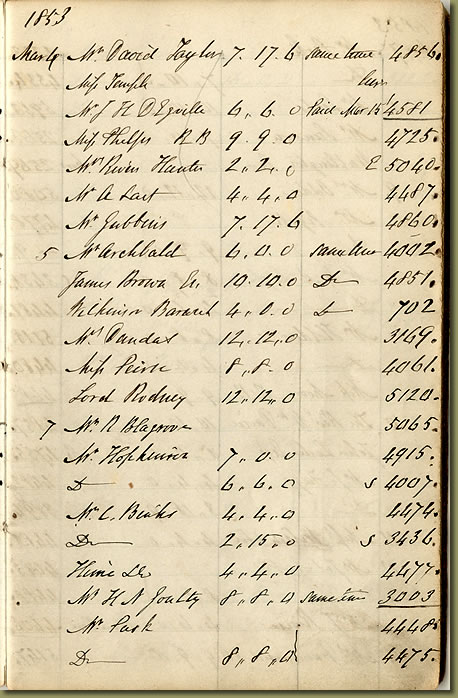 1853
Mar 4 Mr David Taylor 7. 17. 6 same time 4856.
Miss Temple
Mr J H D'Egville 6. 6. 0 Paid Mar 15 4581
Miss Phelps R B 9. 9. 0 4725.
Mrs Rivers Hunter 2. 2. 0 E 5040.
Mr A Last 4. 4. 0 4487.
Mr Gubbins 7. 17. 6 4860.
5 Mr Archbald 6. 0. 0 same time 4002.
James Brown 10. 10. 0 Do 4851.
Wilkinson 4. 0. 0 Do 702
Mrs Dundas 12. 12. 0 3169.
Miss Peirse 8. 8. 0 4061.
Lord Rodney 12. 12. 0 5120.
7 Mr R Blagrove 5065.
Mr Hopkinson 7. 0. 0 4915.
Do 6. 6. 0 S 4007.
Mr C. Binks 4. 4. 0 4474.
Do 2. 15. 0 S 3436.
4. 4. 0 4477.
Mr H N Goulty 8. 8. 0 same time 3003
Mr Park 4448
Do 8. 8. 0 4475.